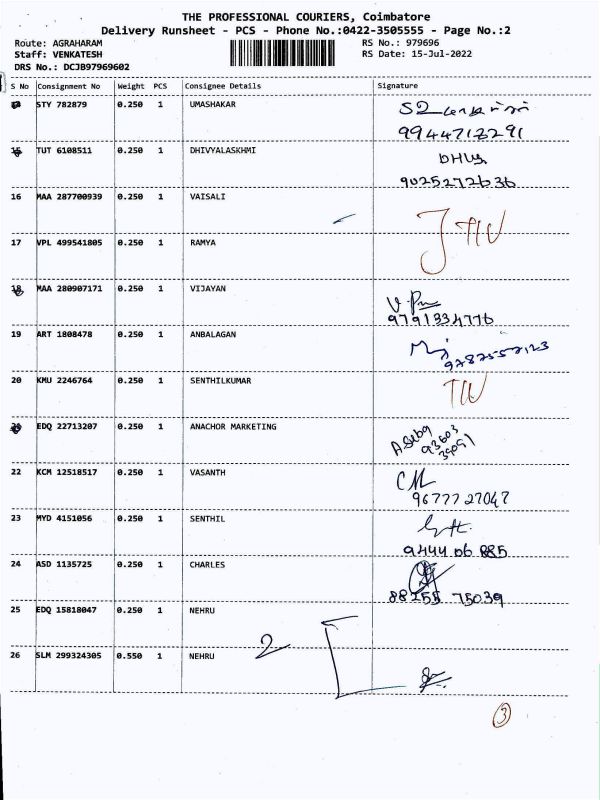 THE PROFESSIONAL COURIERS, Coimbatore
Delivery Runsheet - PCS - Phone No.:0422-3505555 - Page No.:2
Route: AGRAHARAM
Staff: VENKATESH
DRS No.: DCJB97969602
RS No.: 979696
RS Date: 15-Jul-2022
S No Consignment No Weight PCS Consignee Details Signature
STY 782879 0.250 1 UMASHAKAR
9944713291
15 TUT 6108511 0.250 1 DHIVYALASKHMI
9025272636
16 MAA 287700939 0.250 1 VAISALI
17 VPL 499541805 0.250 1 RAMYA
18 MAA 280907171 0.250 1 VIJAYAN
9791334776
19 ART 1808478 0.250 1 ANBALAGAN
20 KMU 2246764 0.250 1 SENTHILKUMAR
EDQ 22713207 0.250 1 ANACHOR MARKETING
22 KCM 12518517 0.250 1 VASANTH
9677727047
23 MYD 4151056 0.250 1 SENTHIL
9444 06 885
24 ASD 1135725 0.250 1 CHARLES
88255 75039
25 EDQ 15818047 0.250 1 NEHRU
2
26 SLM 299324305 0.550 1 NEHRU
3